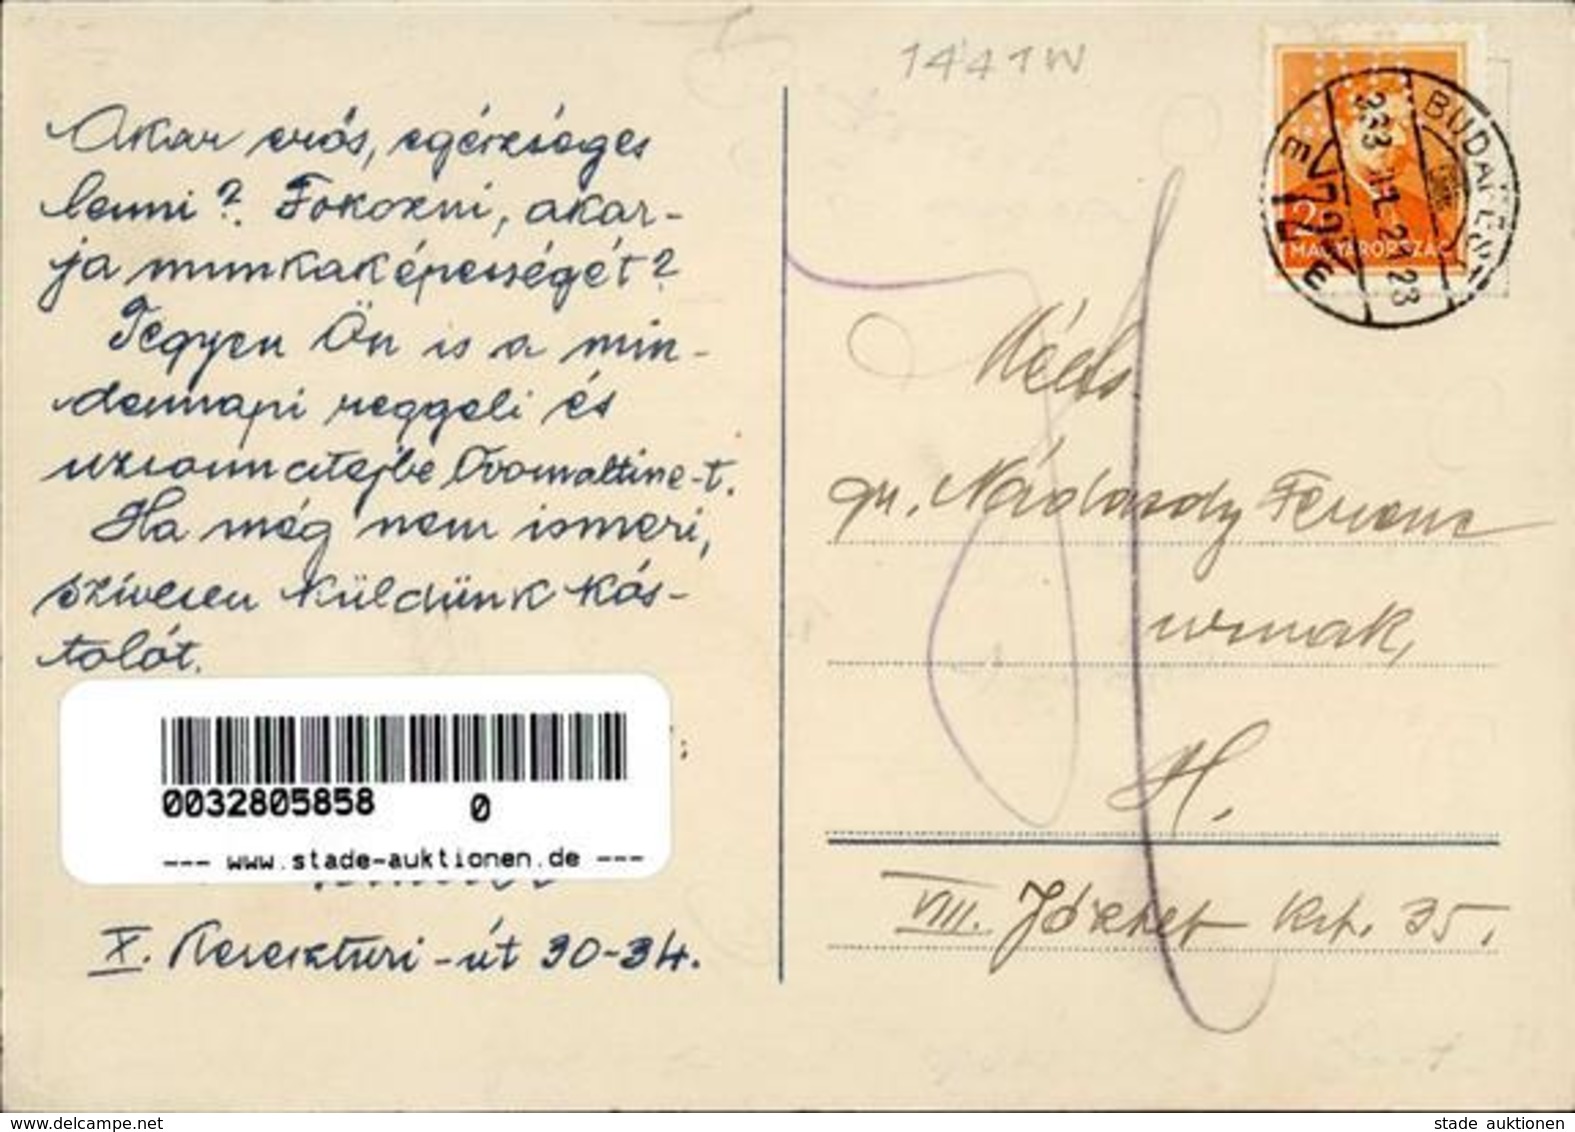 1441W
Akar erős, egészséges
lenni? Fokozni, akar-
ja munkaképességét?
Tegyen Ön is a min-
dennapi reggeli és
uzsonnatejbe Ovomaltine-t.
Ha még nem ismeri,
szívesen küldünk kós-
tolót.
0032805858 0
--- www.stade-auktionen.de ---
X. Kereszturi-út 30-34.
BUDAPEST
2
MAGYARORSZÁG
gr. Nádasdy Ferenc
urnak,
H.
VIII. József krt. 35.
www.delcampe.net
stade auktionen